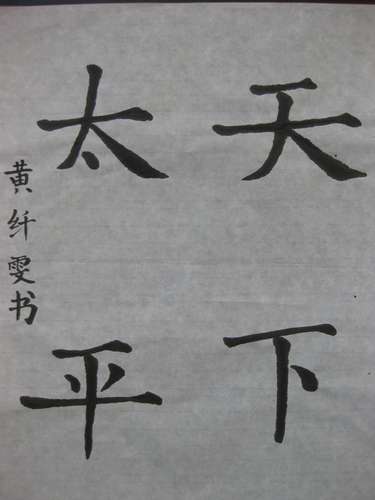 天下
太平
黄纤雯书